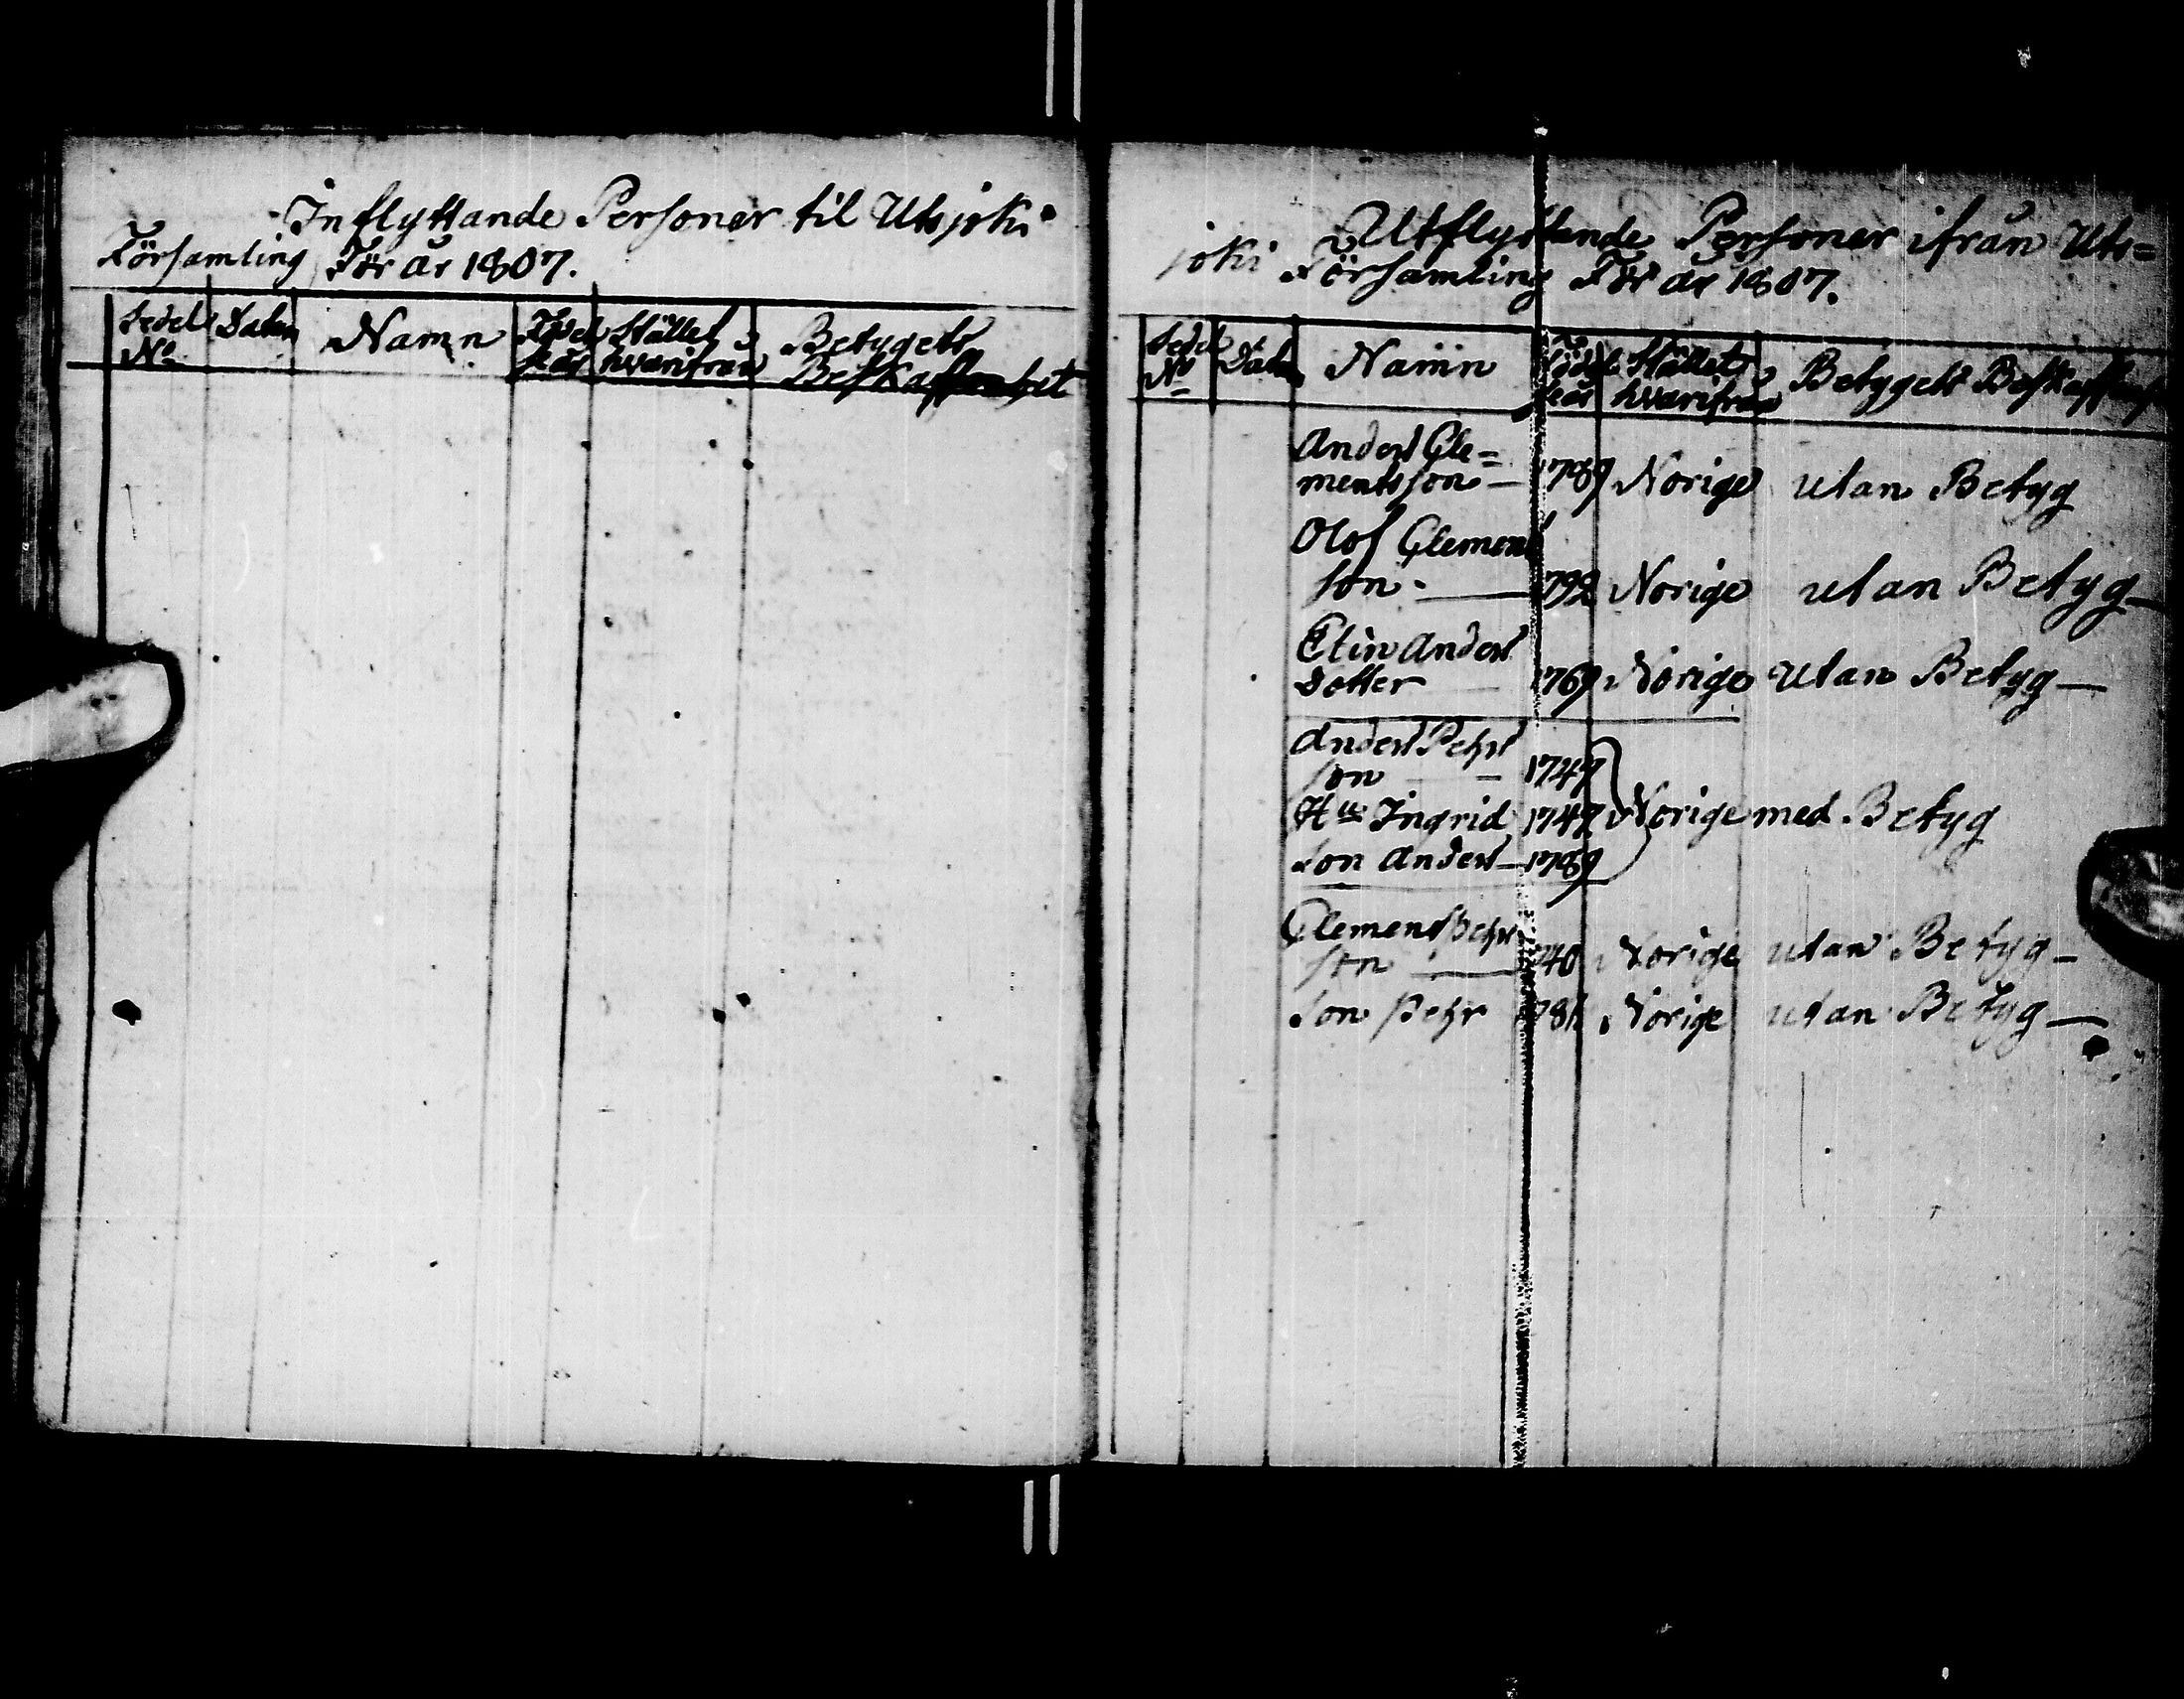 Inflyttande Personer til Utsjoki
Församling För år 1807.
Sedel Datum Namn Födel Stället Betygets
No se år hvarifrån Beskaffenhet
Utflyttande Personer ifrån Uts=
joki Församling För år 1807.
Sedel Datum Namn Födel Stället Betygets Beskaffenh
No se år hvarifrån
Anders Cle=
mentsson — 1789 Norige utan Betyg
Olof Clement
son — 1792 Norige utan Betyg —
Elin Anders
dotter 1769 Norige utan Betyg —
Anders Pehrs
son — 1747
Hu Ingrid 1747 Norige med Betyg
Son Anders — 1789
Clemens Pehrs
son — 1740 Norige utan Betyg —
Son Pehr 1781 Norige utan Betyg —